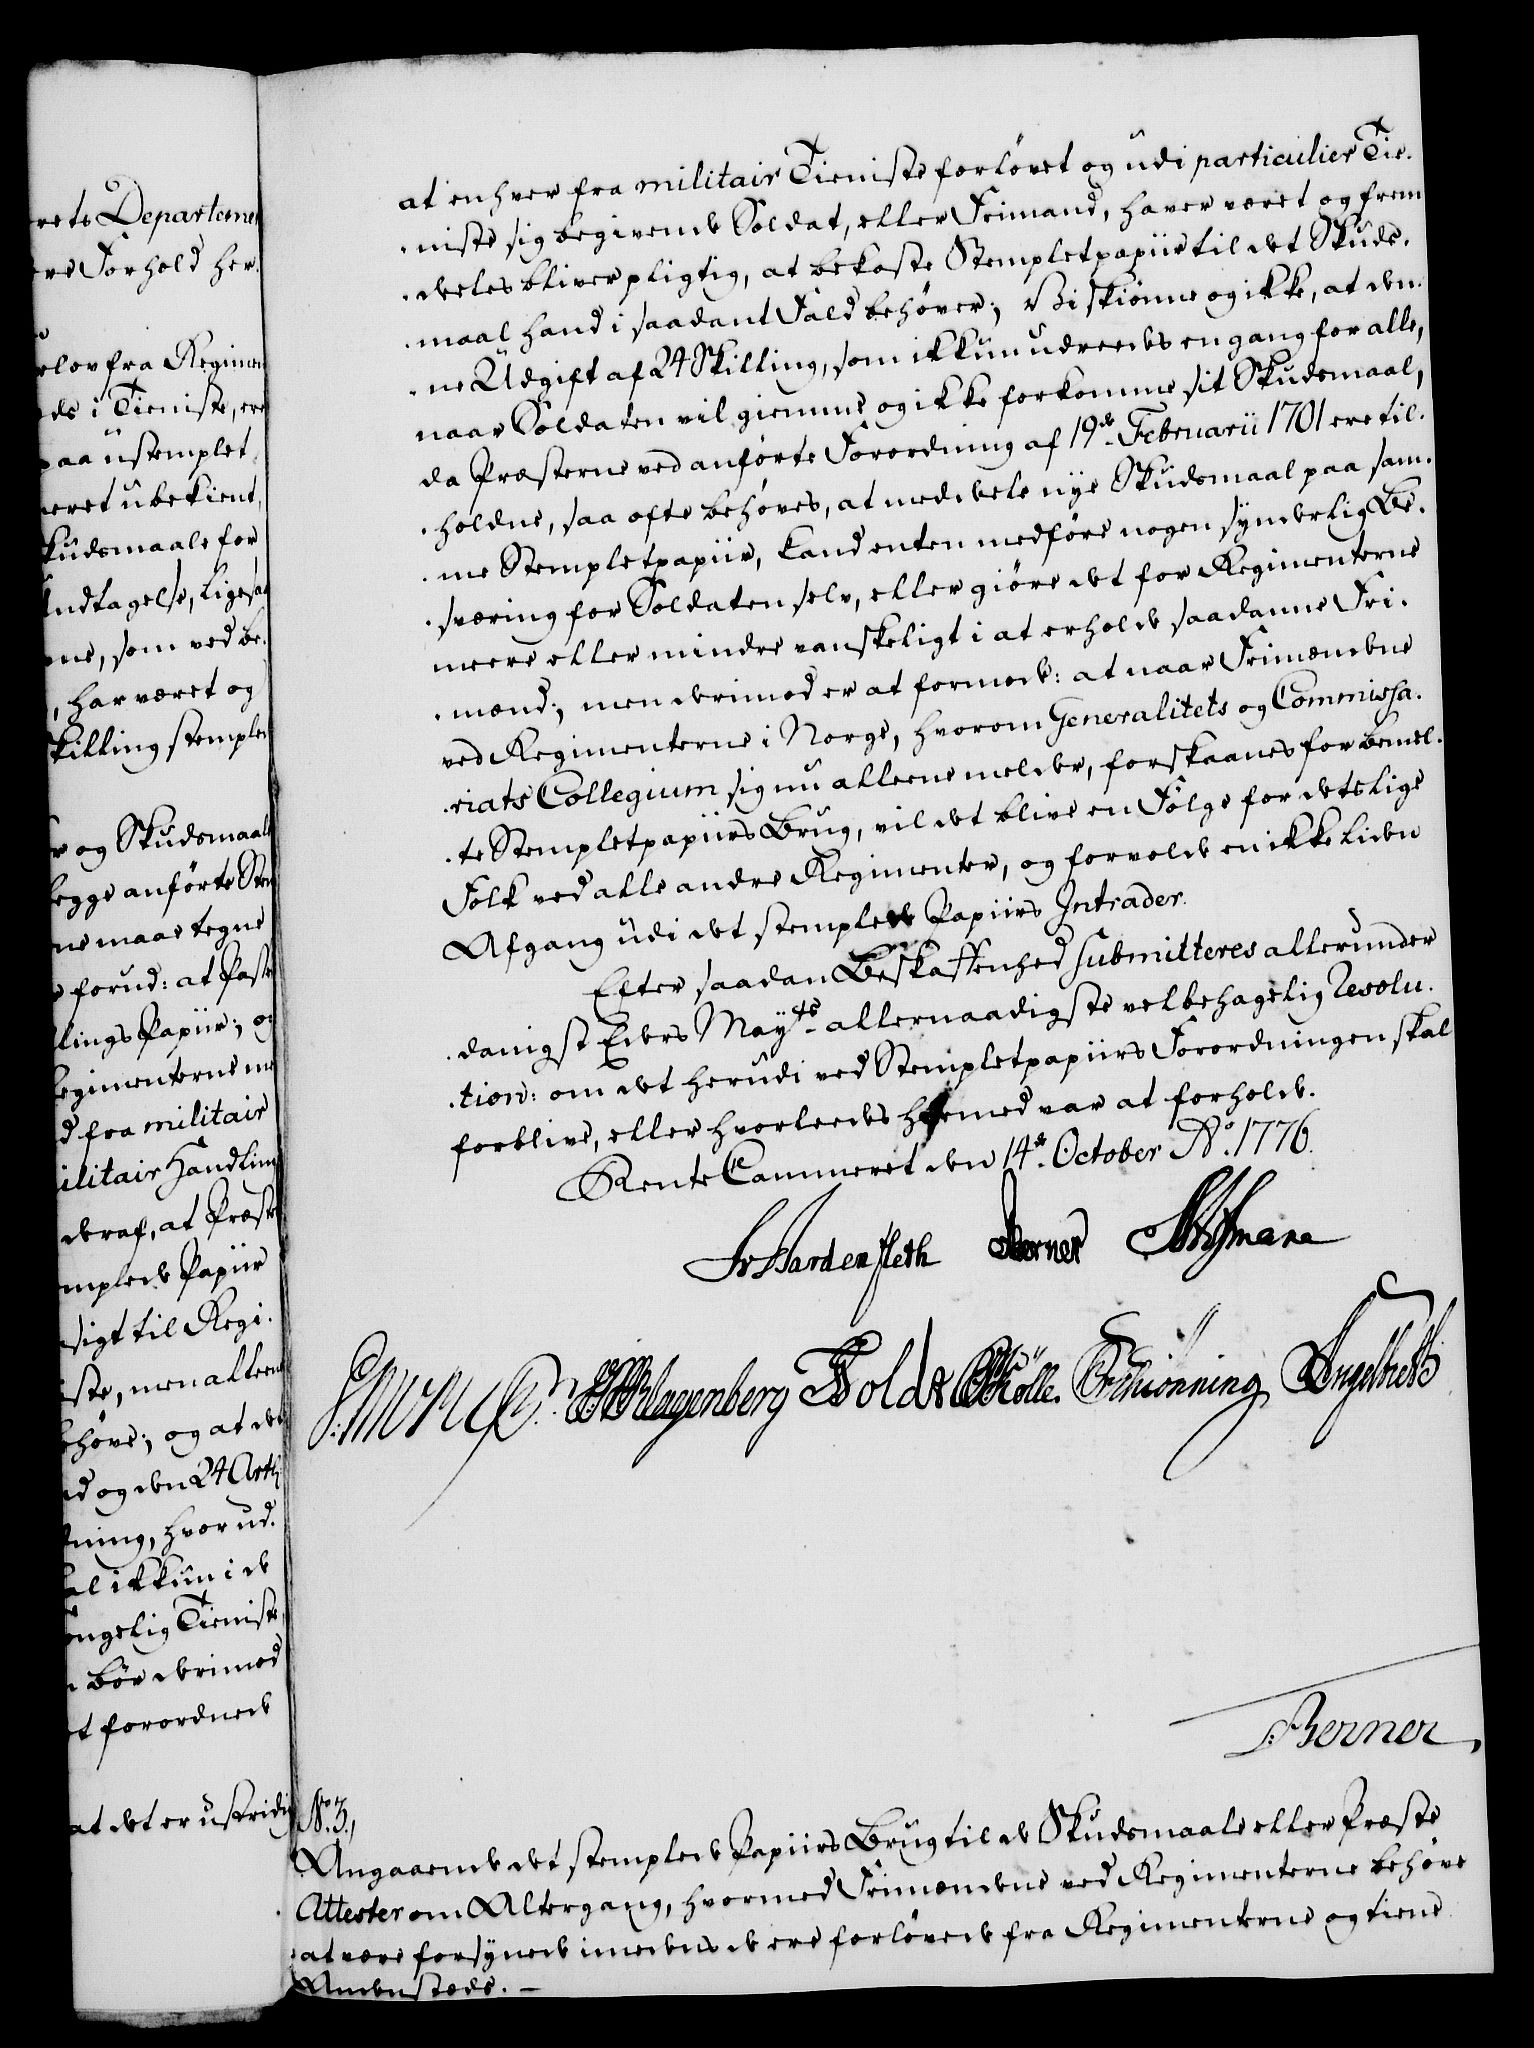 rets Departemen
ere Forhold her.
rlov fra Regimen
ds i Tieniste, ere
paa ustemplet
eret ubekient,
kudsmaale for
Undtagelse, ligesaa
ne, som ved be.
, har været og
killing stemplet
er og Skudsmaale
egge anførte Stem
ne maae tegne
forud: at Passe
lings Papiir; og
Regimenterne me
d fra militair
ilitair Handling
deraf, at Præste
mplede Papiir
sigt til Regi.
ste, men alleene
høve; og at det
d og den 24 Art:
ning, hvor ud.
al ikkun i de
ngelig Tieniste,
bør derimod
t forordnede
at det er ustridig
at enhver fra militair Tieniste forløvet og udi particulier Tie.
.niste sig begivende Soldat, eller Frimand, haver været og frem
.deeles bliver pligtig, at bekoste Stempletpapiir til det Skuds.
.maal hand i saadant Fald behøver; Vi skiønne og ikke, at den.
.ne Udgift af 24 Skilling, som ikkun udreedes engang for alle,
naar Soldaten vil giemme og ikke forkomme sit Skudsmaal,
da Præsterne ved anførte Forordning af 19de Februarii 1701 ere til.
.holdne, saa ofte behøves, at meddeele nye Skudsmaal paa sam.
.me Stempletpapiir, kand enten medføre nogen synderlig Be.
.sværing for Soldaten selv, eller giøre det for Regimenterne
meere eller mindre vanskeligt i at erholde saadanne Fri.
.mænd; men derimod er at formode: at naar Frimændene
ved Regimenterne i Norge, hvorom Generalitets og Commissa.
.riats Collegium sig nu alleene melder, forskaanes for bemel.
.te Stempletpapiirs Brug, vil det blive en Følge for detslige
Folk ved alle andre Regimenter, og forvolde en ikke liden
Afgang udi det stemplede Papiirs Intrader.
Efter saadan Beskaffenhed submitteres allerunder
.danigst Eders Mayts allernaadigste velbehagelig Resolu.
.tion: om det herudi ved Stempletpapiirs Forordningen skal
forblive, eller hvorleedes hermed var at forholde.
Rente Cammeret den 14de October Ao. 1776.
Hardenfleth Berner
Klagenberg Holdt Kølle Erichsonning Angelbeth
Berner,
No. 3.,
Angaaende det stemplede Papiirs Brug til de Skudsmaale eller Præste
Attester om Altergang, hvormed Frimændene ved Regimenterne behøve
at være forsynede imedens de ere forløvede fra Regimenterne og tiene
Andenstæds. –